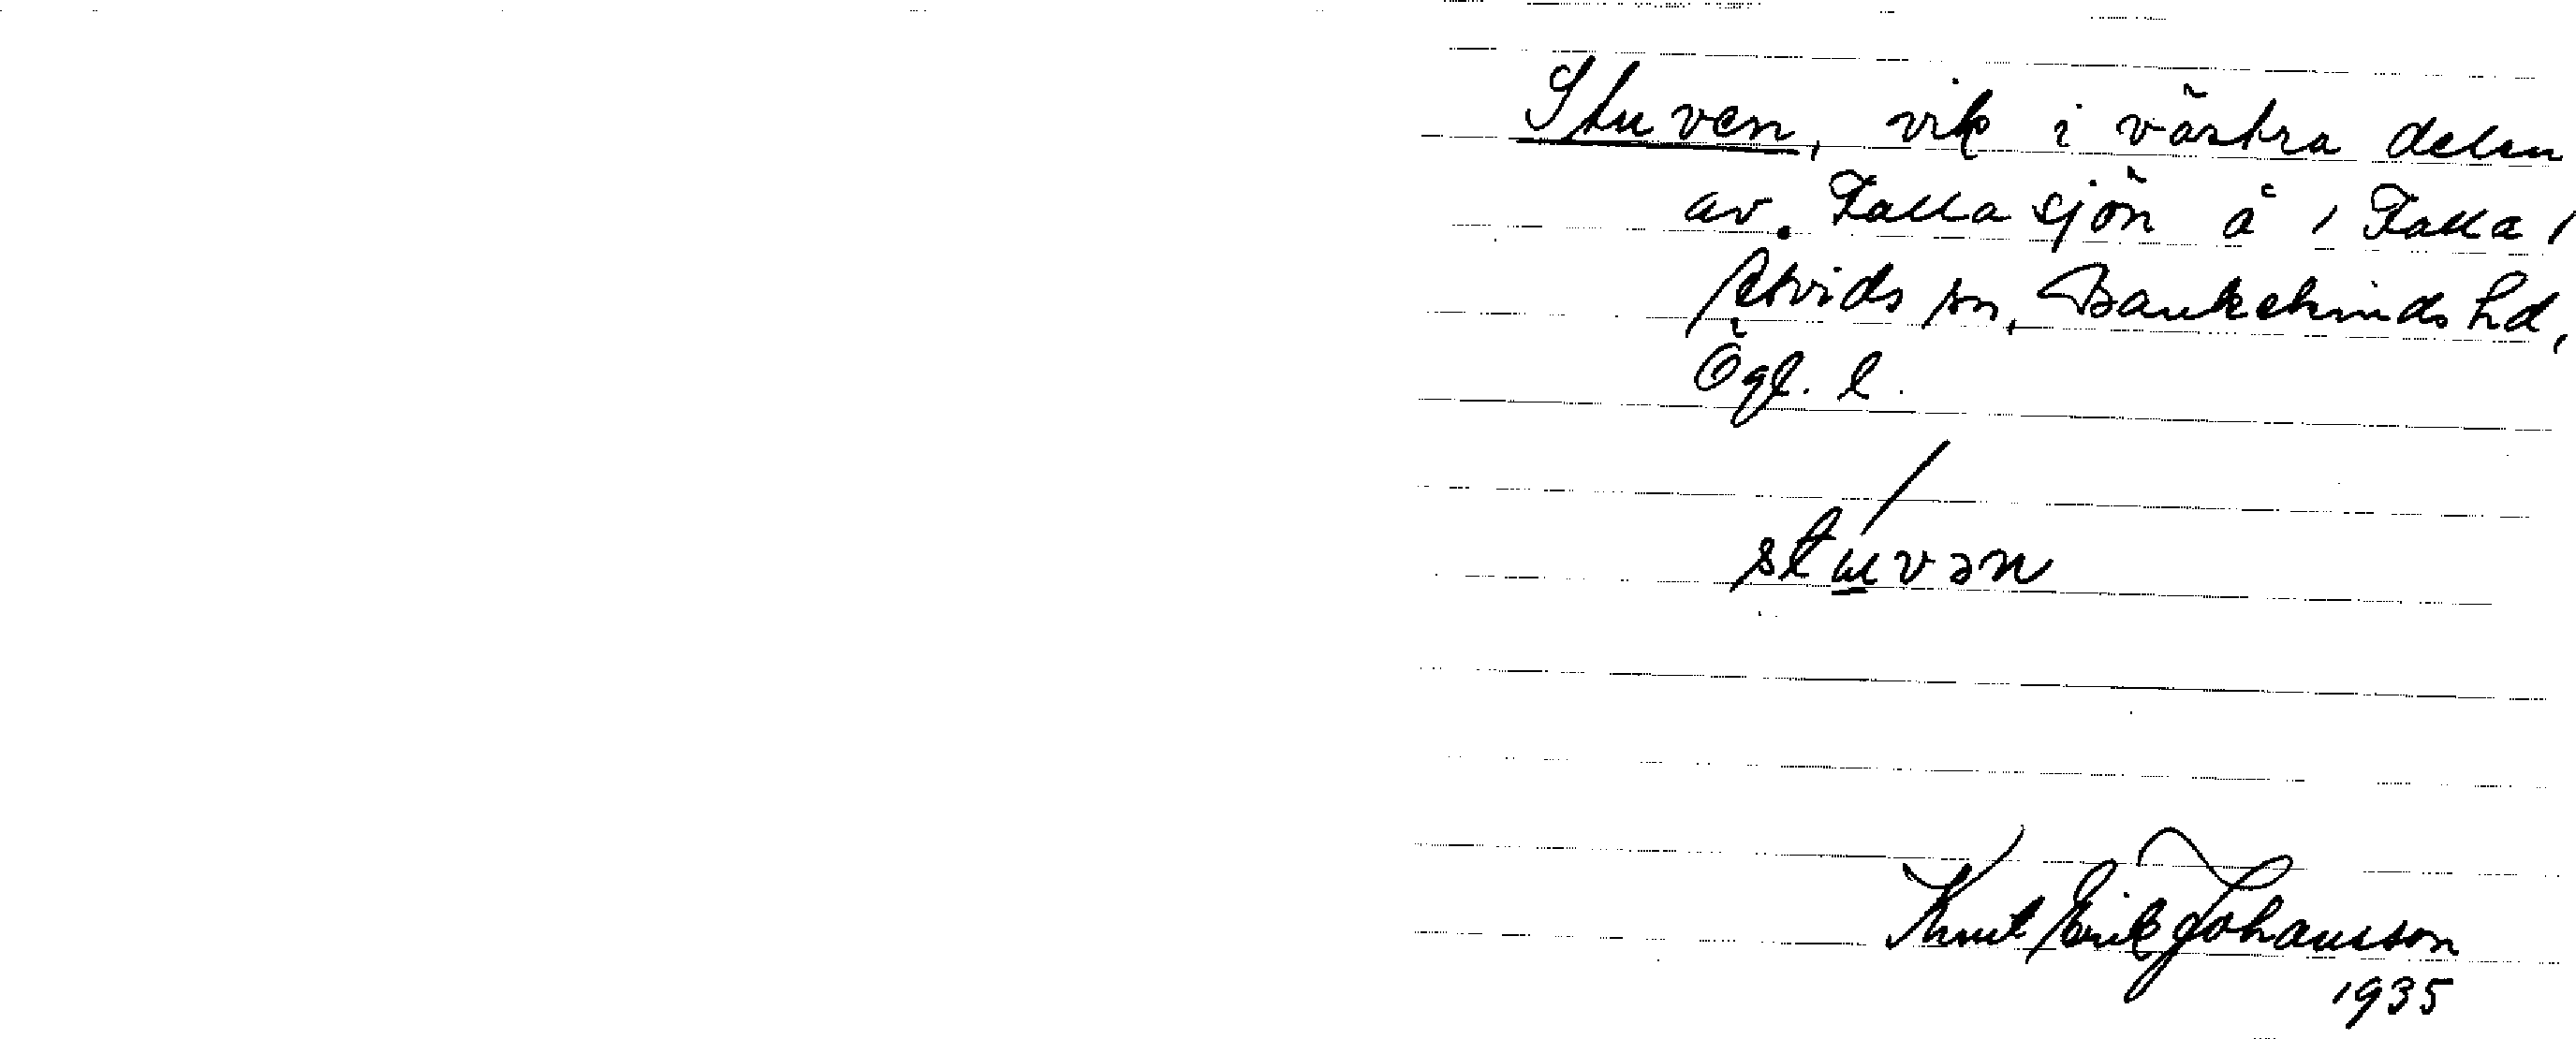 Stuven, vik i västra delen
av Fallasjön å /Falla/
Åtvids sn, Bankekinds hd,
Ögl. l.
/
stuvən
Knut Erik Johansson
1935